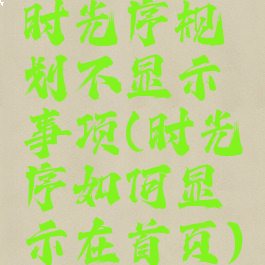 时光序规
划不显示
事项(时光
序如何显
示在首页)